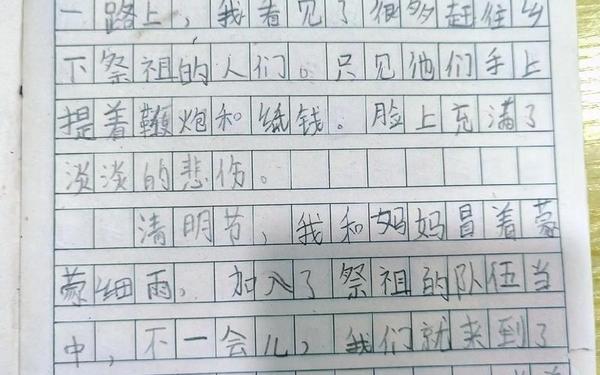 一路上，我看见了很多赶往乡
下祭祖的人们。只见他们手上
提着鞭炮和纸钱。脸上充满了
淡淡的悲伤。
清明节，我和妈妈冒着蒙
蒙细雨，加入了祭祖的队伍当
中，不一会儿，我们就来到了